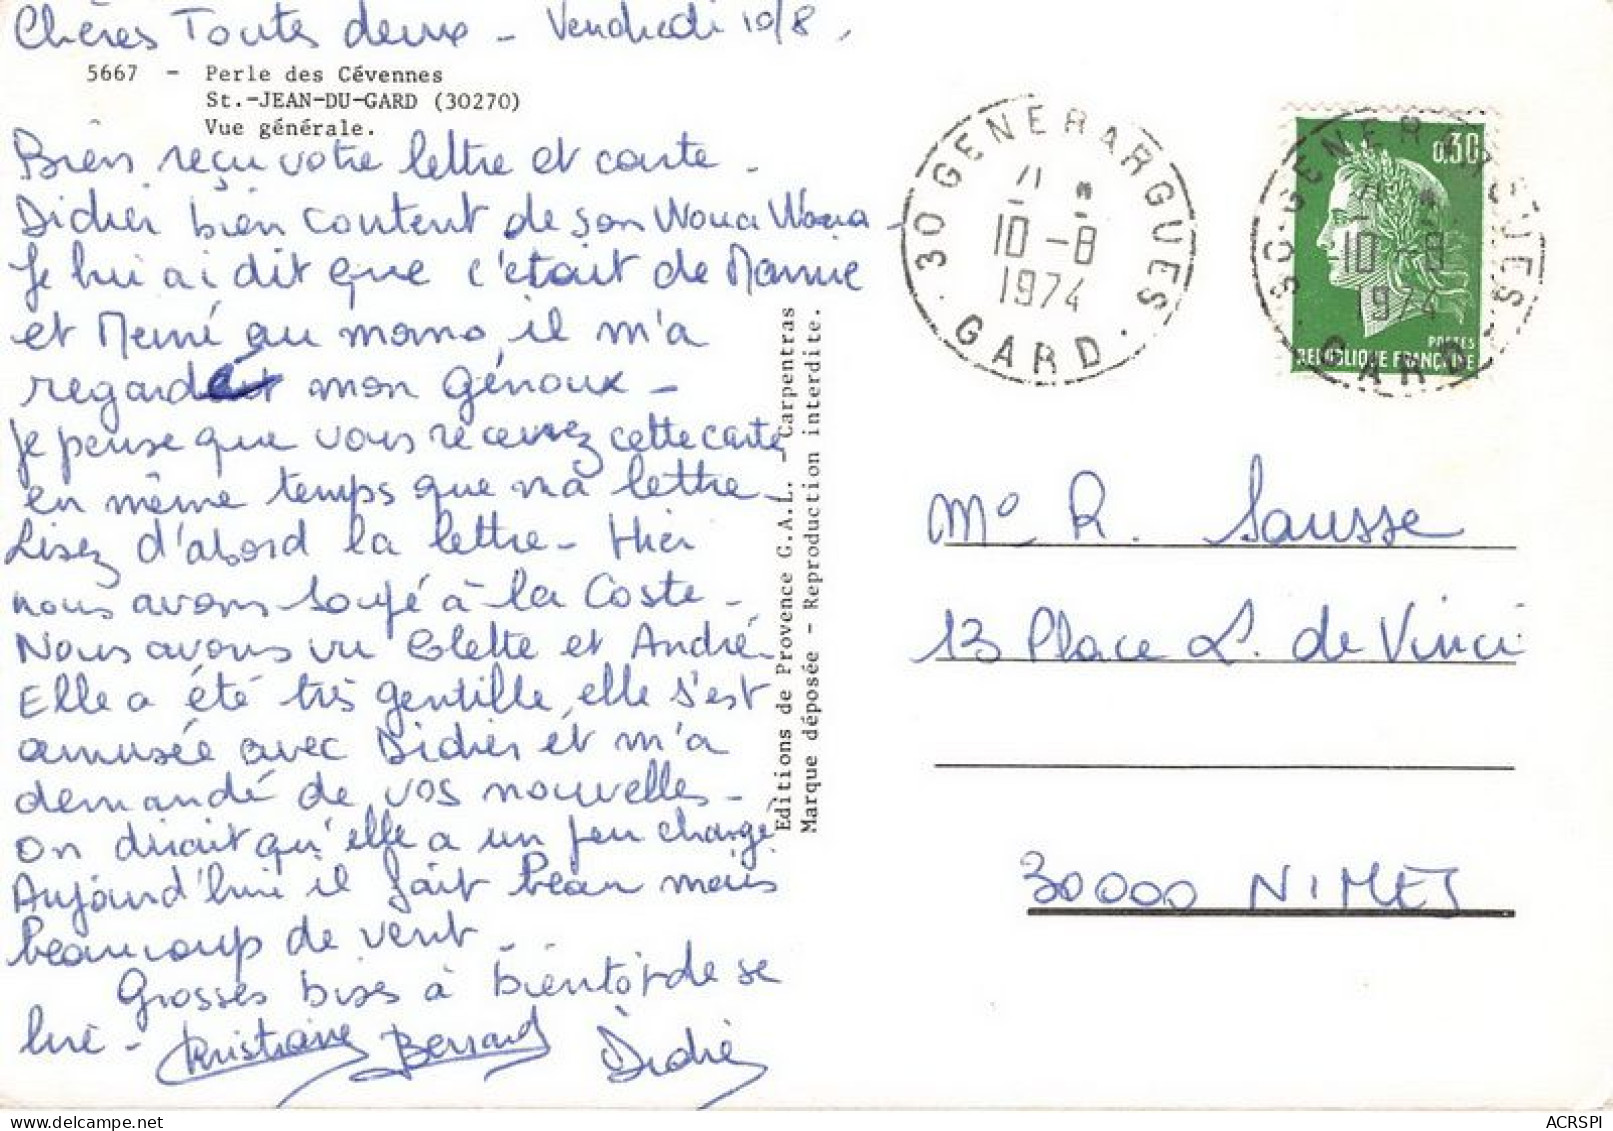 Chères Toutes deux - Vendredi 10/8.
5667 - Perle des Cévennes
St.-JEAN-DU-GARD (30270)
Vue générale.
Bien reçu votre lettre et carte -
Didier bien content de son Noua Noua -
Je lui ai dit que c'était de Mamie
et Memé au mono, il m'a
regardé mon génoux -
Je pense que vous recevrez cette carte
en même temps que ma lettre -
Lisez d'abord la lettre - Hier
nous avons soupé à la Coste -
Nous avons vu Colette et André -
Elle a été très gentille, elle s'est
amusée avec Didier et m'a
demandé de vos nouvelles -
On dirait qu'elle a un peu changé
Aujourd'hui il fait beau mais
beaucoup de vent -
Grosses bises à bientôt de se
lire -
Christiane Bernard Didier
Editions de Provence G.A.L. - Carpentras
Marque déposée - Reproduction interdite.
30 GENERARGUES
10 -8
1974
GARD
0,30
POSTES
REPUBLIQUE FRANÇAISE
30 GENERARGUES
10 -8
1974
GARD
Me R. Sausse
13 Place L. de Vinci
30000 NIMES
ACRSPI